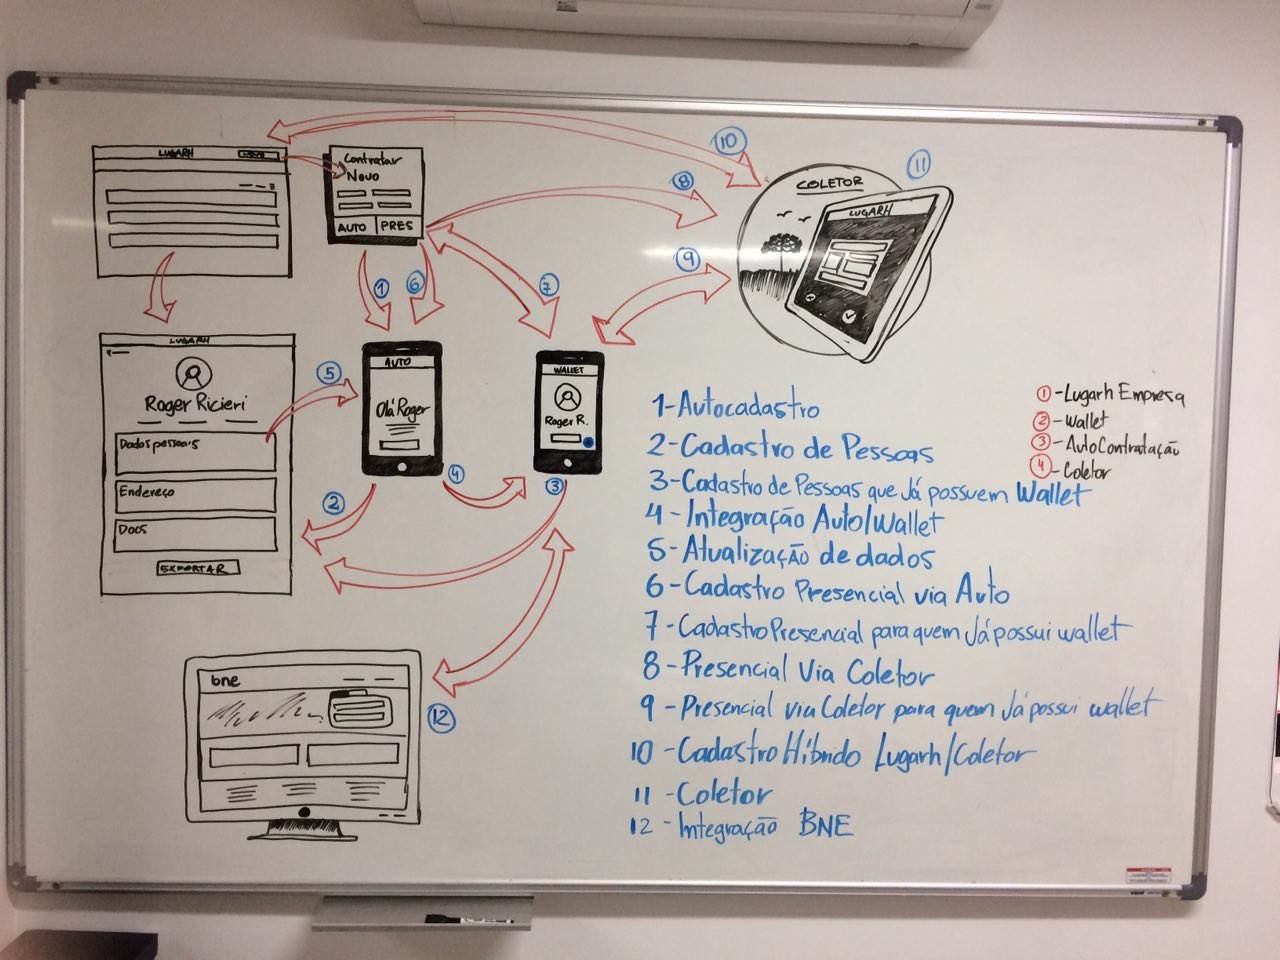 LUGARH
Contratar
Novo
AUTO PRES
10
8
11
COLETOR
LUGARH
9
1
6
7
LUGARH
Roger Ricieri
Dados pessoais
Endereço
Docs
EXPORTAR
5
AUTO
Olá Roger
WALLET
Roger R.
4
3
2
bne
12
1-Autocadastro
2-Cadastro de Pessoas
3-Cadastro de Pessoas que Já possuem Wallet
4-Integração Auto/Wallet
5-Atualização de dados
6-Cadastro Presencial via Auto
7-Cadastro Presencial para quem Já possui wallet
8-Presencial Via Coletor
9-Presencial via Coletor para quem Já possui wallet
10-Cadastro Híbrido Lugarh/Coletor
11-Coletor
12-Integração BNE
1-Lugarh Empresa
2-Wallet
3-AutoContratação
4-Coletor